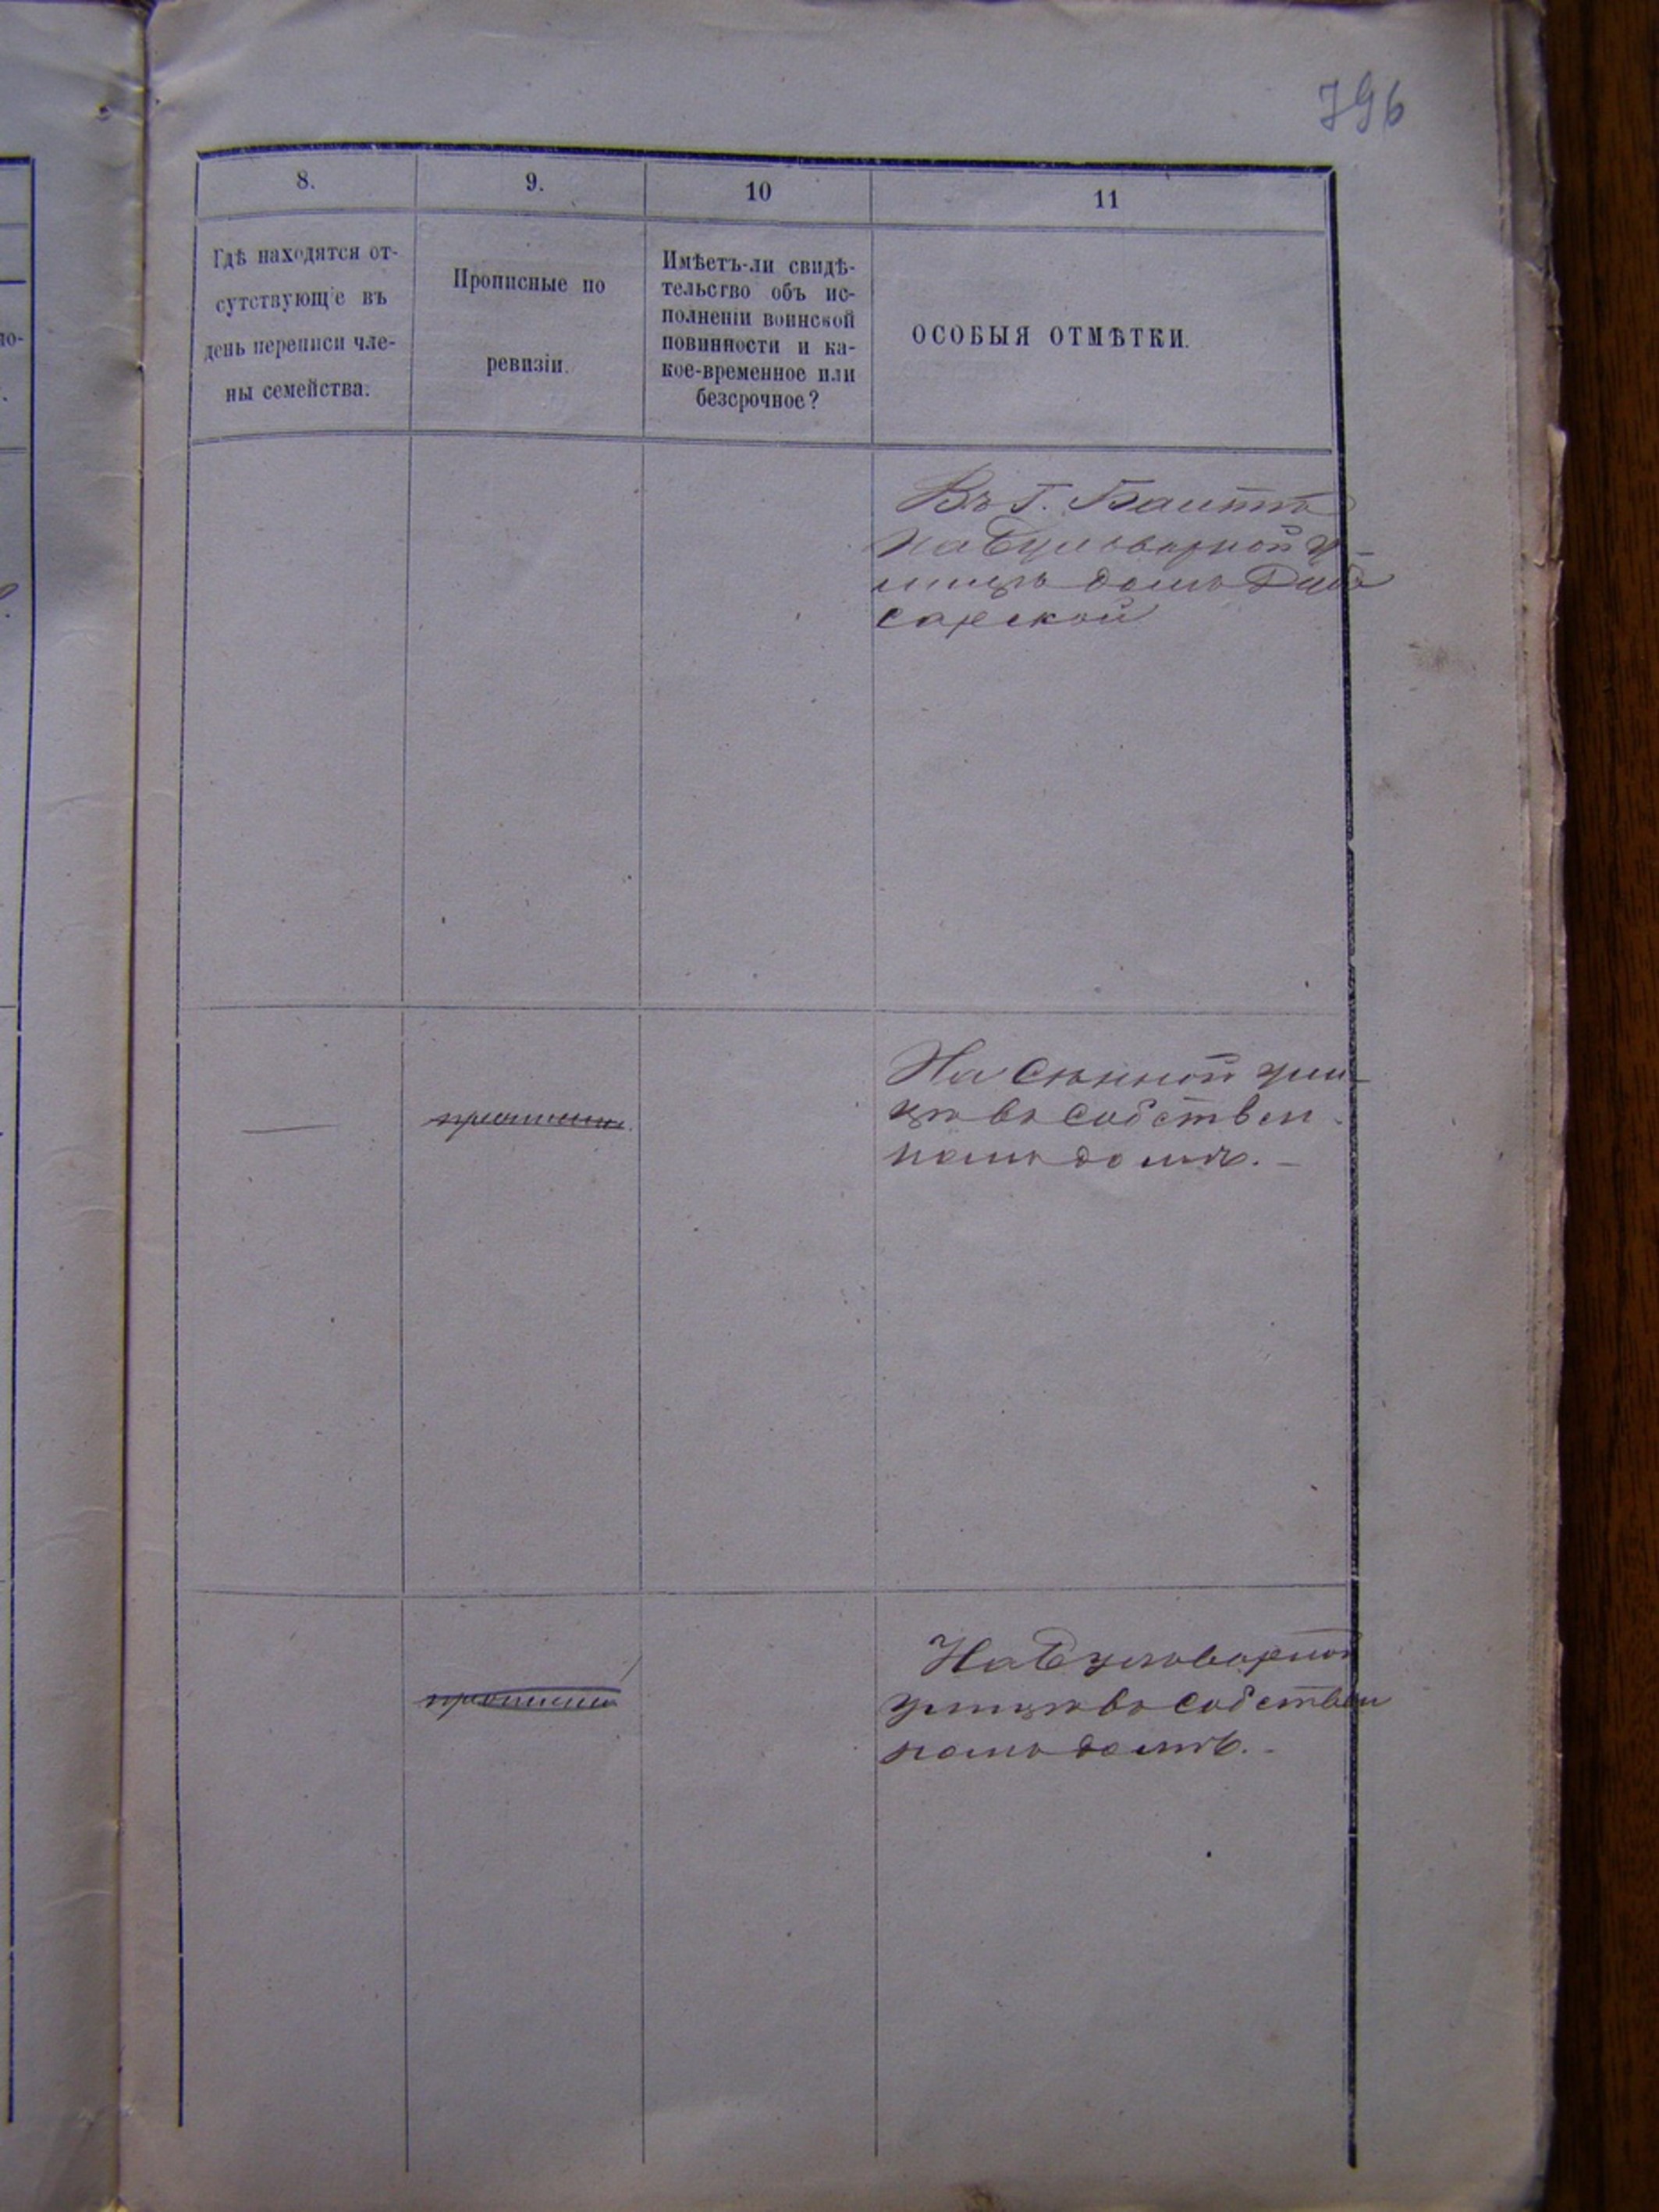 796
8.
9.
10
11
Гдѣ находятся от-
сутствующіе въ
день переписи чле-
ны семейства.
Прописные по
ревизіи.
Имѣетъ-ли свидѣ-
тельство объ ис-
полненіи воинской
повинности и ка-
кое-временное или
безсрочное?
ОСОБЫЯ ОТМѢТКИ.
Въ Г. Балтѣ
на Бульварной у-
лицѣ домъ Дубо
сарской
На Сѣнной ули-
цѣ въ собствен-
номъ домѣ. -
На Бульварной
улицѣ въ собствен
номъ домѣ. -